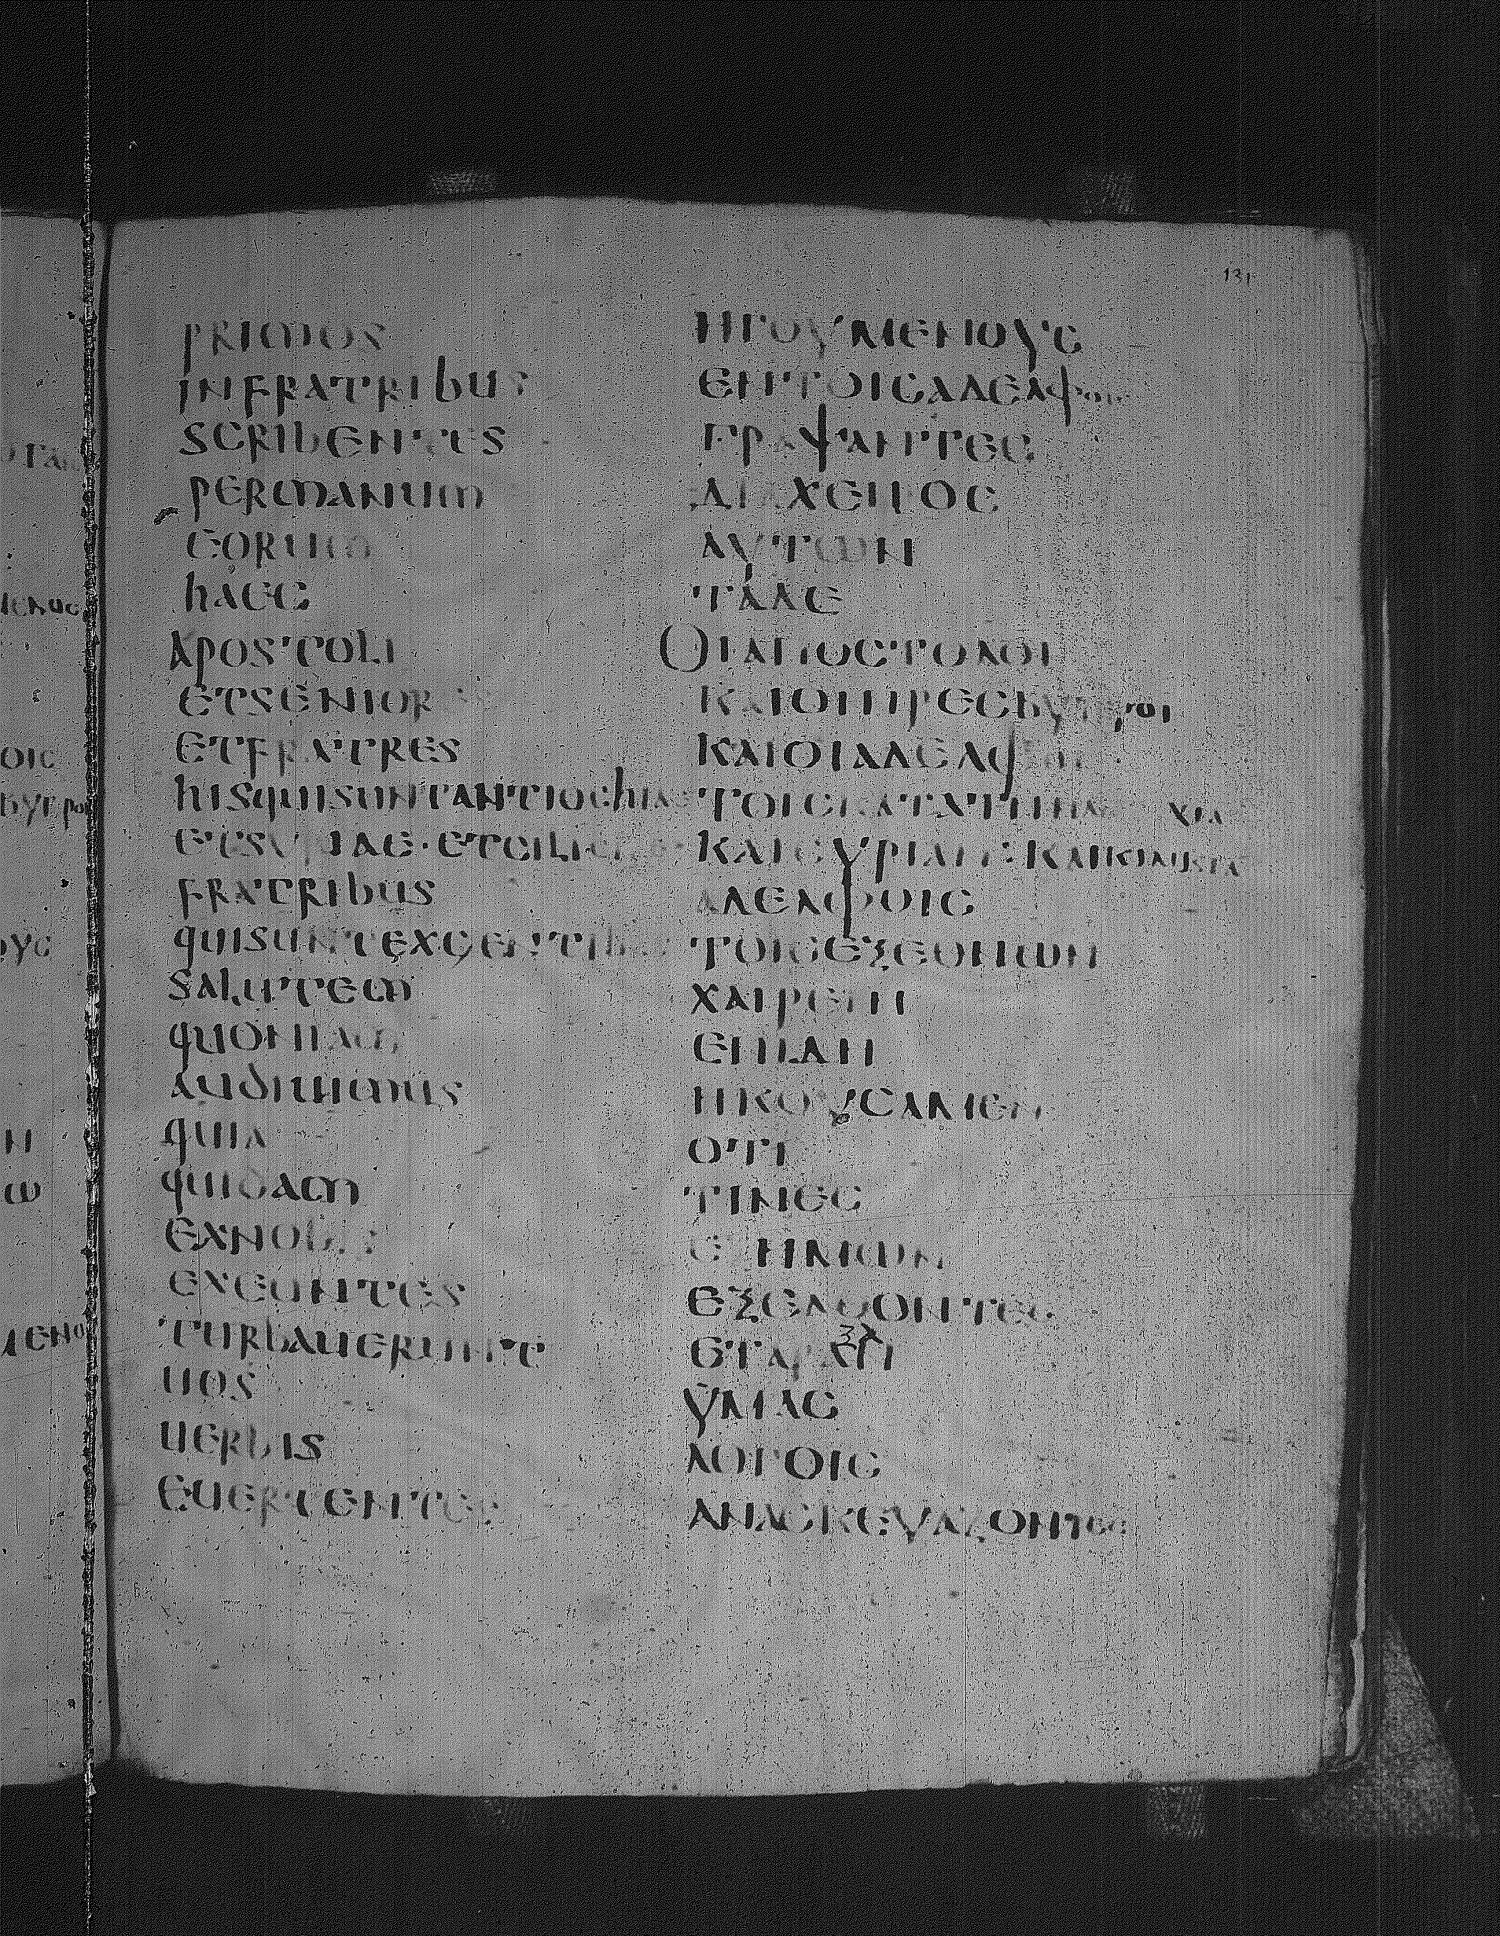 131
primos
infratribus
scribentes
permanum
eorum
haec
apostoli
etseniores
etfratres
hisquisuntantiochiae
etsyriae·etciliciae
fratribus
quisuntexgentibus
salutem
quoniam
audiuimus
quia
quidam
exnobis
exeuntes
turbauerunt
uos
uerbis
euertentes
ΗΓΟΥΜΕΝΟΥC
ΕΝΤΟΙCΑΔΕΛΦΟΙC
ΓΡΑΨΑΝΤΕC
ΔΙΑΧΕΙΡΟC
ΑΥΤΩΝ
ΤΑΔΕ
ΟΙΑΠΟCΤΟΛΟΙ
ΚΑΙΟΙΠΡΕCΒΥΤΕΡΟΙ
ΚΑΙΟΙΑΔΕΛΦΟΙ
ΤΟΙCΚΑΤΑΤΗΝΑΝΤΙΟΧΙΑ
ΚΑΙCΥΡΙΑΝ·ΚΑΙΚΙΛΙΚΙΑ
ΑΔΕΛΦΟΙC
ΤΟΙCΕΞΕΘΝΩΝ
ΧΑΙΡΕΙΝ
ΕΠΙΔΗ
ΗΚΟΥCΑΜΕΝ
ΟΤΙ
ΤΙΝΕC
ΕΞΗΜΩΝ
ΕΞΕΛΘΟΝΤΕC
ΕΤΑΡΑΞΑΝ
ΥΜΑC
ΛΟΓΟΙC
ΑΝΑCΚΕΥΑΖΟΝΤΕC